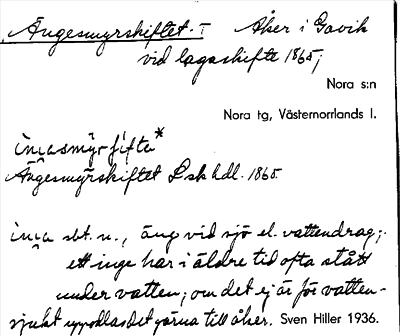 Ängesmyrskiftet. I Åker i Gavik
vid lagaskifte 1865;
Nora s:n
Nora tg, Västernorrlands l.
Ängesmyrskiftet Lsk hdl. 1865
sbt. n., äng vid sjö el. vattendrag;
ett inge har i äldre tid ofta stått
under vatten; om det ej är för vatten-
sjukt uppodlas det gärna till åker. Sven Hiller 1936.